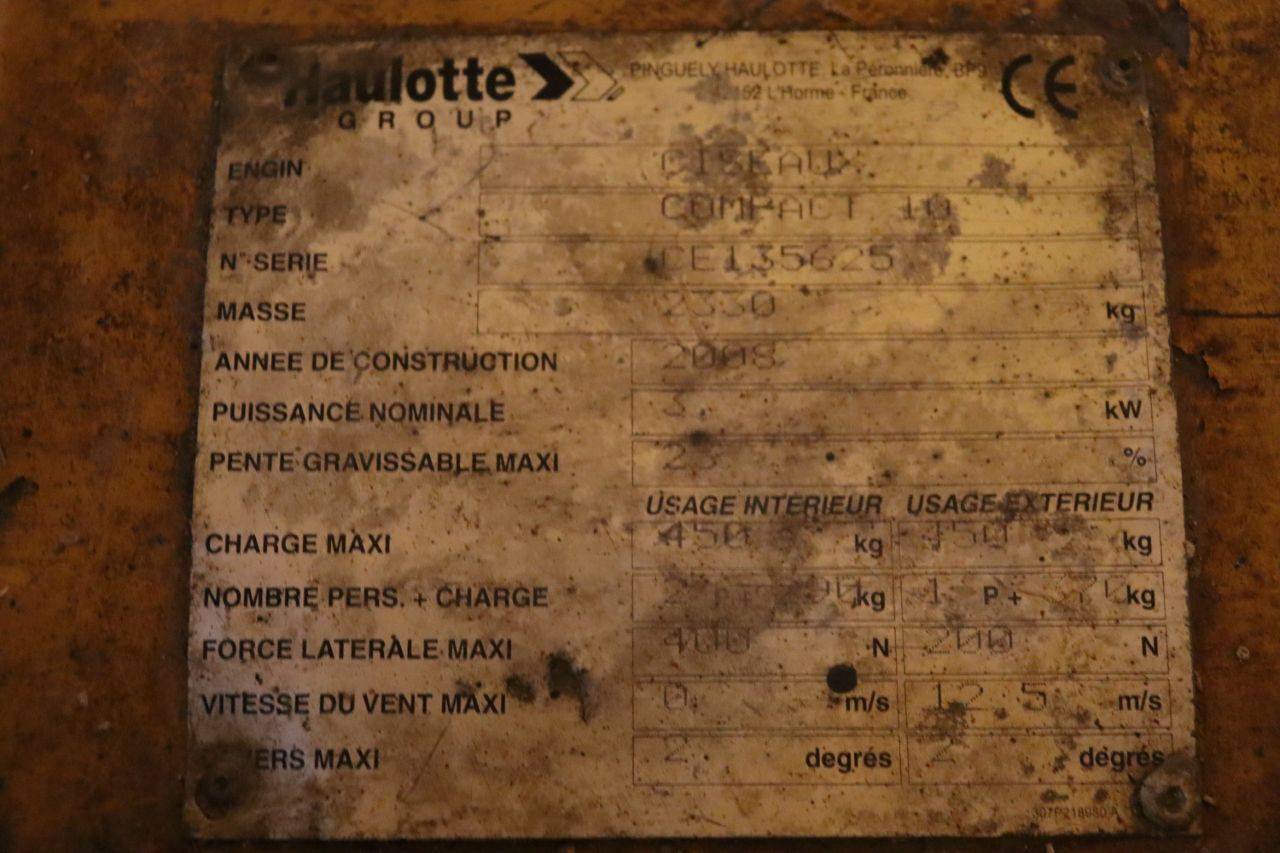 Haulotte
GROUP
PINGUELY HAULOTTE La Péronnière, BP9
152 L'Horme - France
CE
ENGIN CISEAUX
TYPE COMPACT 10
N° SERIE CE135625
MASSE 2330 kg
ANNEE DE CONSTRUCTION 2008
PUISSANCE NOMINALE 3 kW
PENTE GRAVISSABLE MAXI 23 %
USAGE INTERIEUR USAGE EXTERIEUR
CHARGE MAXI 450 kg 450 kg
NOMBRE PERS. + CHARGE P + kg 1 P + kg
FORCE LATERALE MAXI 400 N 200 N
VITESSE DU VENT MAXI 0 m/s 12.5 m/s
MAXI 2 degrés 2 degrés
307P218980 A